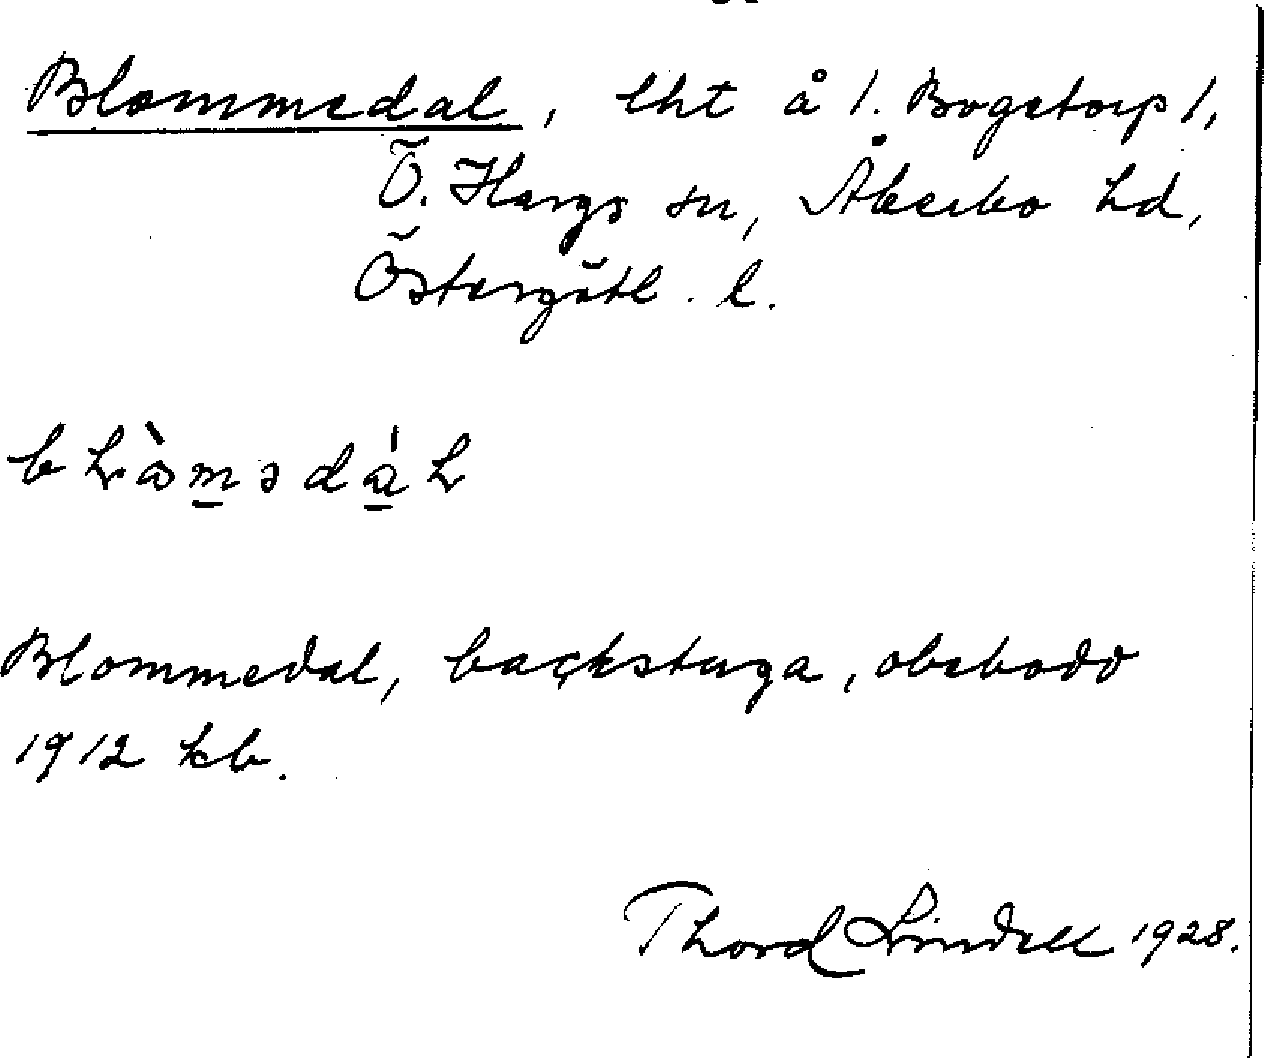 Blommedal, lht å 1. Bogstorp 1,
Ö. Hargs sn, Åkerbo hd,
Östergötl. l.
Blommedal, backstuga, obebodd
1912 kb.
Thord Lindell 1928.